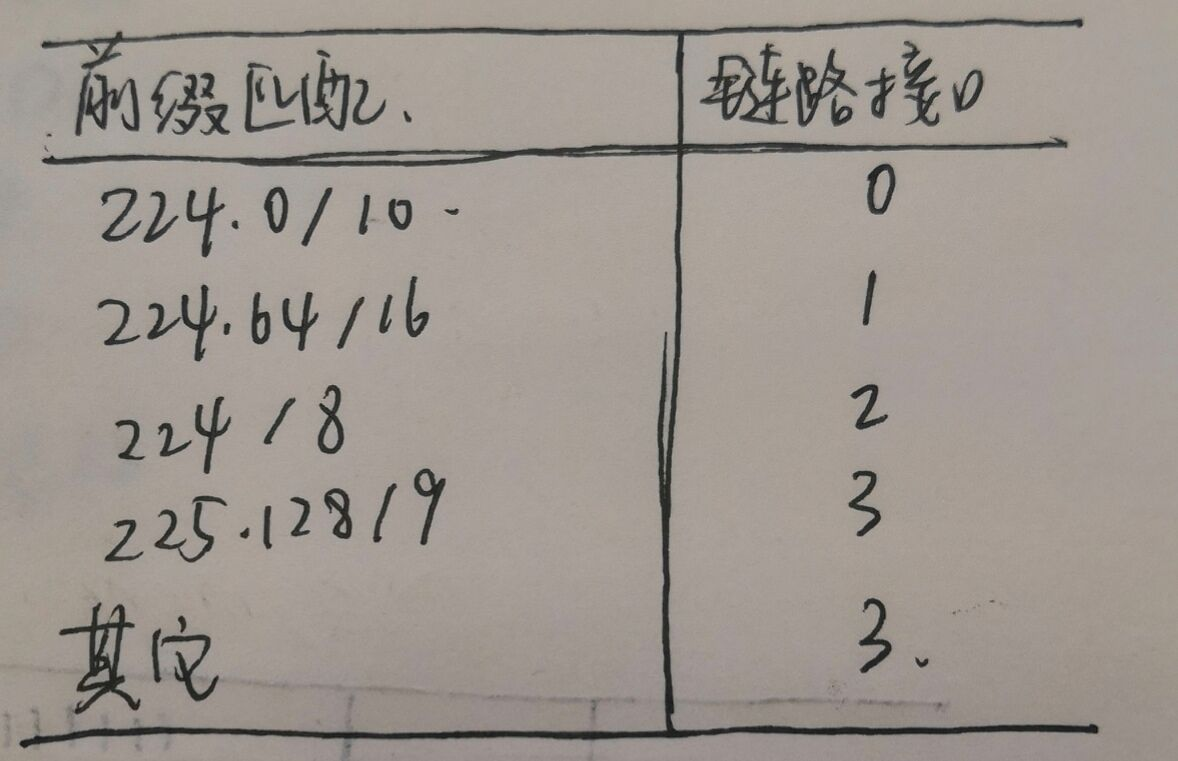 前缀匹配. 链路接口
224.0/10 0
224.64/16 1
224/8 2
225.128/9 3
其它 3.